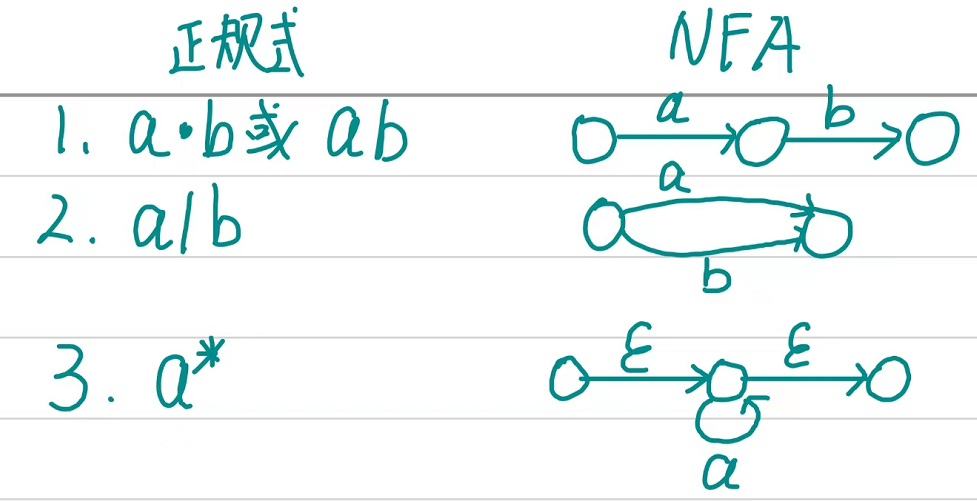 正规式 NFA
1. a·b或 ab
a b
2. a|b
a
b
3. a*
ε ε
a